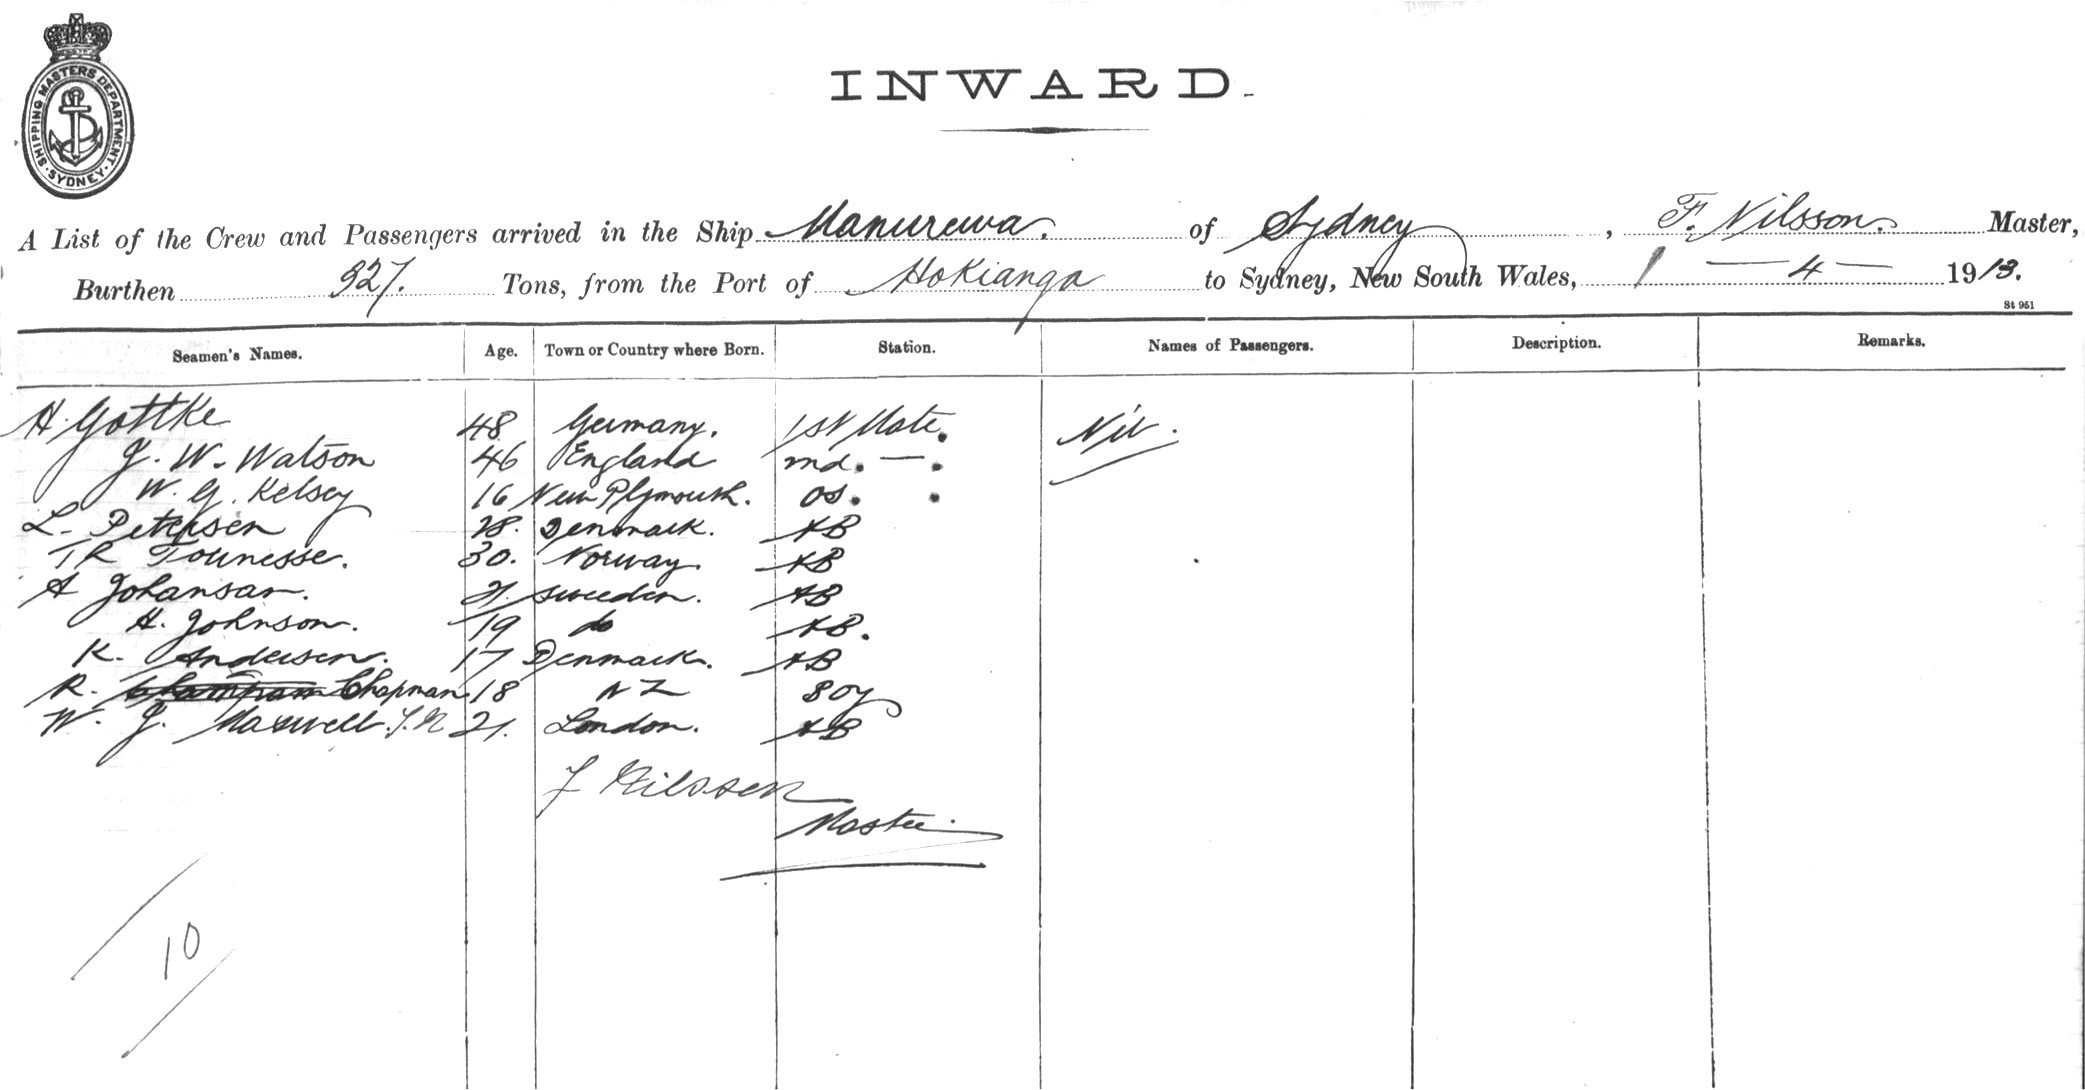 SHIPPING MASTERS DEPARTMENT
SYDNEY
INWARD.
A List of the Crew and Passengers arrived in the Ship Manurewa. of Sydney, F. Nilsson. Master,
Burthen 327. Tons, from the Port of Hokianga to Sydney, New South Wales, 1 — 4 — 1913.
St 951
Seamen's Names. Age. Town or Country where Born. Station. Names of Passengers. Description. Remarks.
H. Gottke 48 Germany. 1st Mate. Nil.
J. W. Watson 46 England 2nd. — .
W. G. Kelsey 16 New Plymouth. OS.
L. Petersen 28. Denmark. AB
TR Tounesse. 30. Norway. AB
A Johansan. 21. Sweden. AB
H. Johnson. 19 do AB.
K. Andersen. 17 Denmark. AB
R. Chapman 18 N Z Boy
W. J. Maxwell. 21. London. AB
F Nilssen
Master.
10